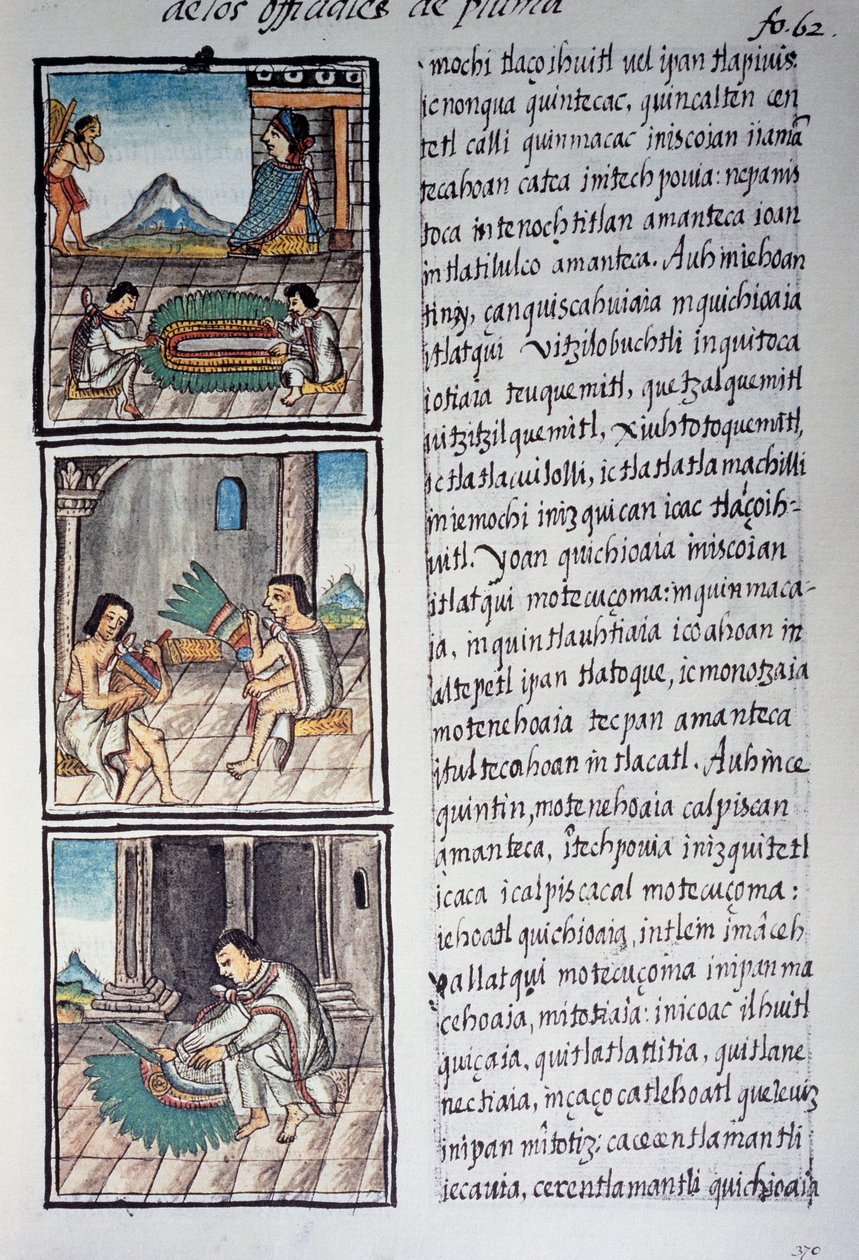 de los officiales de pluma
fo. 62.
mochi tlaçoihuitl uel ipan tlapiuis:
ic nonqua quintecac, quincalten cen
tetl calli quinmacac iniscoian iiamã
tecahoan catca initech pouia: nepanis
toca in tenochtitlan amanteca ioan
in tlatilulco amanteca. Auh iniehoan
tiny, çanquiscahuiaia inquichioaia
itlatqui Vitzilobuchtli inquitoca
iotiaia teuquemitl, quetzalquemitl
uitzitzilquemitl, Xiuhtotoquemitl,
ic tlatlacuilolli, ic tlatlatlamachilli
in ie mochi inizquican icac tlaçoih-
uitl. Yoan quichioaia iniscoian
itlatqui motecuçoma: in quinmaca-
ia, in quintlauhtiaia icoahoan in
altepetl ipan tlatoque, ic monotzaia
motenehoaia tecpan amanteca
itultecahoan in tlacatl. Auh in ce
quintin, motenehoaia calpiscan
amanteca, itech pouia inizquitetl
icaca icalpiscacal motecuçoma:
iehoatl quichioaia, intlein imâceh
pallatqui motecuçoma inipan ma
cehoaia, mitotiaia: inicoac ilhuitl
quiçaia, quitlatlatlitia, quitlane
nectiaia, inçaço catlehoatl queleuiz
inipan mîtotiz: ca cecentlamantli
iecauia, cecentlamantli quichioaia
370